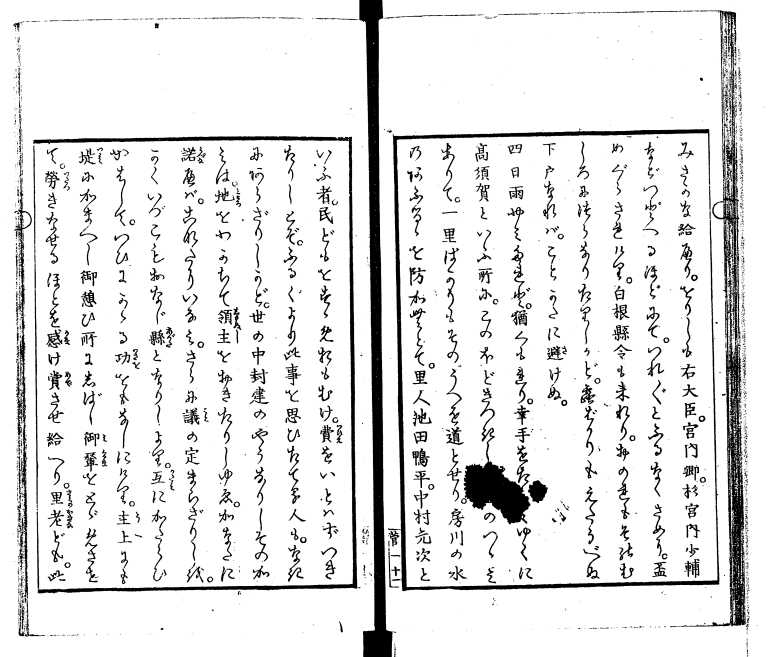 みさかな給へり。をりしも右大臣。宮内卿。杉宮内少輔
などつどへるほどにて。
めぐらさせけり。白根縣令も来れり。おのれもそれむ
しろにはべりたりしかど。露ばかりもえたうべぬ
下戸なれば。ことさらに避けぬ。
四日雨やみたれど。猶くもれり。幸手をたちてゆくに
高須賀といふ所に。このほどきつきし のつゝみ
ありて。一里ばかりもそのうへを道とせり。房川の水
のあふるゝを防がむとて。里人池田鴨平。中村元次と
十一
いふ者。民どもをすゝめおもむけ。費をいとはずつき
たりしとぞ。ふるくより此事を思ひたてる人も。なき
にあらざりしかど。世の中封建のやうなりしそのか
みは。地をわかちて領主をおきたりしゆゑ。かなたに
諾へば。これよりいなみ。さらに議の定まらざりしが。
かくいづこもおなじ縣となりしより。互にかたらひ
かはして。つひにかゝる功をもなしにけり。主上にも
堤にかまへし御憩ひ所にしばし御輦をとゞめさせ
て。勞きたまへるほどを感け賞させ給へり。里老ども此